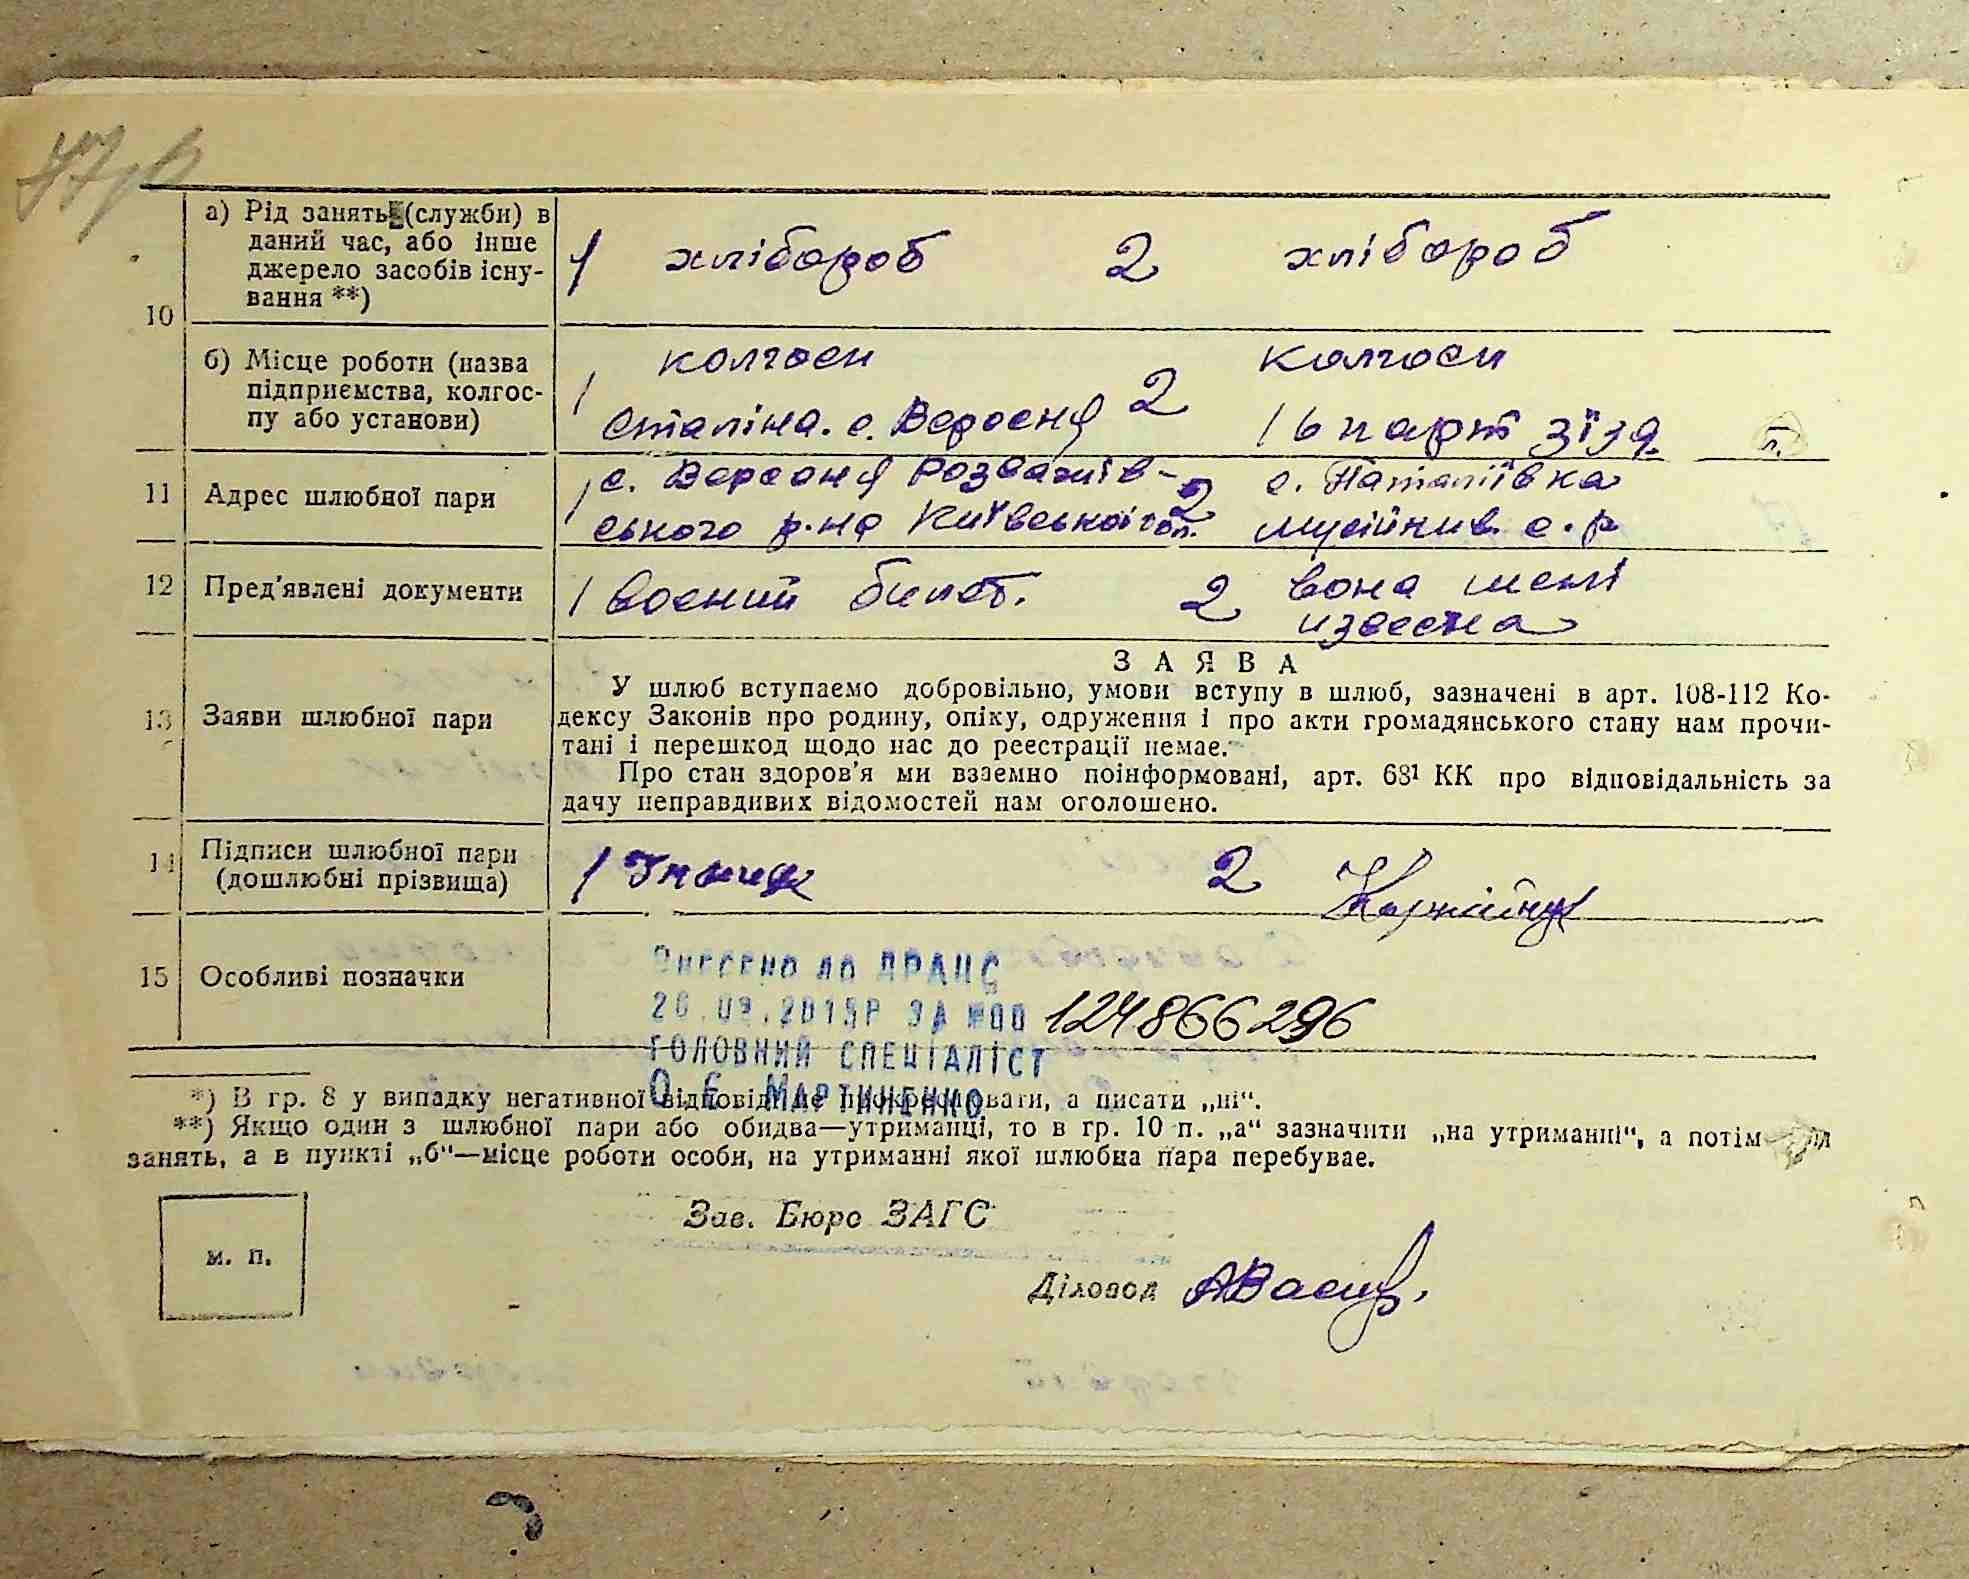 10
а) Рід занять (служби) в
даний час, або інше
джерело засобів існу-
вання **)
1 хлібороб 2 хлібороб
б) Місце роботи (назва
підприємства, колгос-
пу або установи)
1 колгосп 2 колгосп
Сталіна. с. Вересня 16 парт зїзд.
11 Адрес шлюбної пари
1 с. Вересня Розважів- 2 с. Наталіївка
ського р-на Київської обл. мусійкив. с. р
12 Пред'явлені документи
1 воєний билет. 2 вона мені
извесна
13 Заяви шлюбної пари
ЗАЯВА
У шлюб вступаємо добровільно, умови вступу в шлюб, зазначені в арт. 108-112 Ко-
дексу Законів про родину, опіку, одруження і про акти громадянського стану нам прочи-
тані і перешкод щодо нас до реестрації немае.
Про стан здоров'я ми взаемно поінформовані, арт. 68¹ КК про відповідальність за
дачу неправдивих відомостей нам оголошено.
14 Підписи шлюбної пари
(дошлюбні прізвища)
1 2
15 Особливі позначки
Внесено до ДРАЦС
за №00 124866296
головний спеціаліст
О.Є. Мартиненко
*) В гр. 8 у випадку негативної відповіді не прокреслювати, а писати „ні“.
**) Якщо один з шлюбної пари або обидва—утриманці, то в гр. 10 п. „а“ зазначити „на утриманні“, а потім рід
занять, а в пункті „б“—місце роботи особи, на утриманні якої шлюбна пара перебувае.
м. п.
Зав. Бюро ЗАГС
Діловод